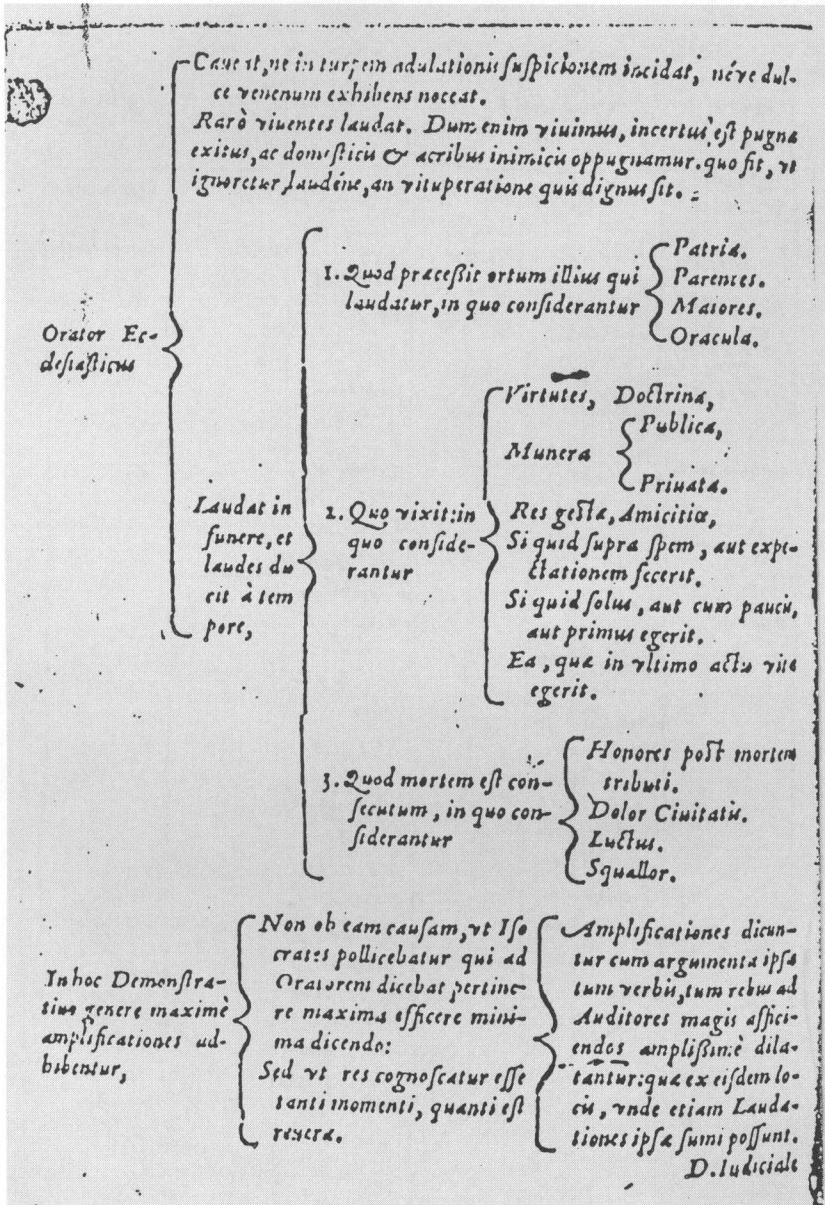 Caveat, ne in turpem adulationis suspicionem incidat, néve dul-
ce venenum exhibens noceat.
Rarò viventes laudat. Dum enim vivimus, incertus est pugnæ
exitus, ac domesticis & acribus inimicis oppugnamur. quo fit, vt
ignoretur, laudéne, an vituperatione quis dignus sit.
Orator Ec-
clesiasticus
Laudat in
funere, et
laudes du
cit à tem
pore,
1. Quod præceßit ortum illius qui
laudatur, in quo considerantur
Patria.
Parentes.
Maiores.
Oracula.
2. Quo vixit: in
quo conside-
rantur
Virtutes, Doctrina,
Munera
Publica,
Priuata.
Res gesta, Amicitiæ,
Si quid supra spem, aut expe-
ctationem fecerit.
Si quid solus, aut cum paucis,
aut primus egerit.
Ea, quæ in vltimo actu vitæ
egerit.
3. Quod mortem est con-
secutum, in quo con-
siderantur
Honores post mortem
tributi.
Dolor Ciuitatis.
Luctus.
Squallor.
In hoc Demonstra-
tiuo genere maximè
amplificationes ad-
hibentur,
Non ob eam causam, vt Iso
crates pollicebatur qui ad
Oratorem dicebat pertine-
re maxima efficere mini-
ma dicendo:
Sed vt res cognoscatur esse
tanti momenti, quanti est
revera.
Amplificationes dicun-
tur cum argumenta ipsa
tum verbis, tum rebus ad
Auditores magis affici-
endos amplißimè dila-
tantur: quæ ex eisdem lo-
cis, vnde etiam Lauda-
tiones ipsæ sumi possunt.
D. Iudiciale